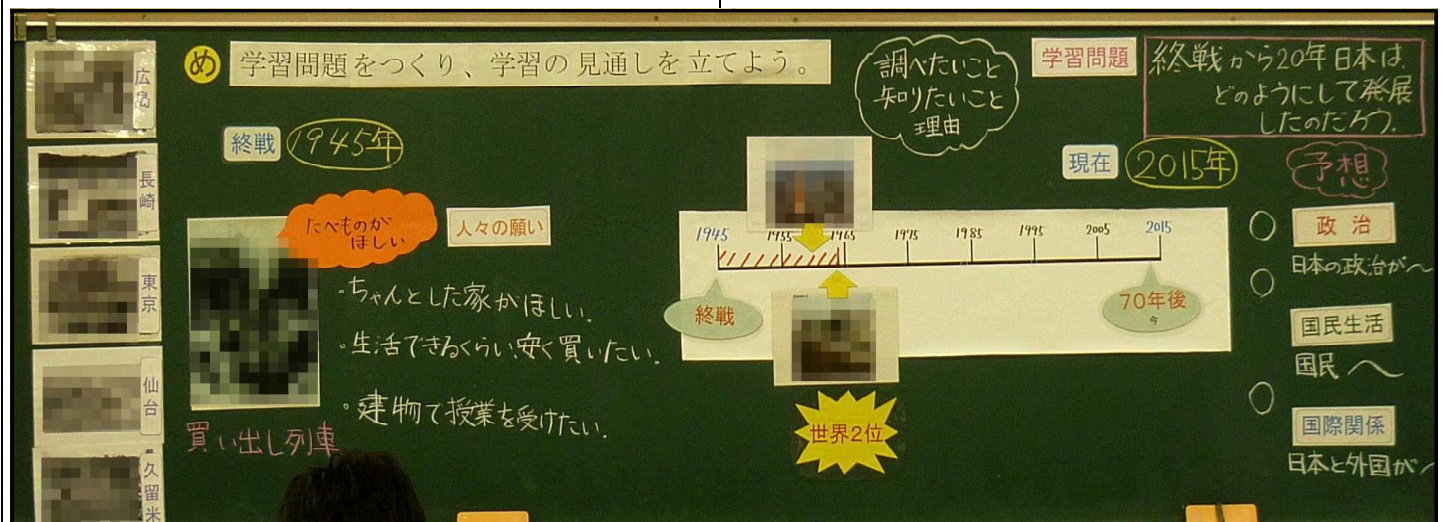 広島
長崎
東京
仙台
久留米
め
学習問題をつくり、学習の見通しを立てよう。
終戦
1945年
たべものが
ほしい
人々の願い
・ちゃんとした家がほしい。
・生活できるくらい安く買いたい。
・建物で授業を受けたい。
買い出し列車
調べたいこと
知りたいこと
理由
学習問題
終戦から20年日本は、
どのようにして発展
したのだろう。
現在
2015年
1945 1955 1965 1975 1985 1995 2005 2015
終戦
70年後
今
世界2位
予想
政治
日本の政治が〜
国民生活
国民へ
国際関係
日本と外国が〜